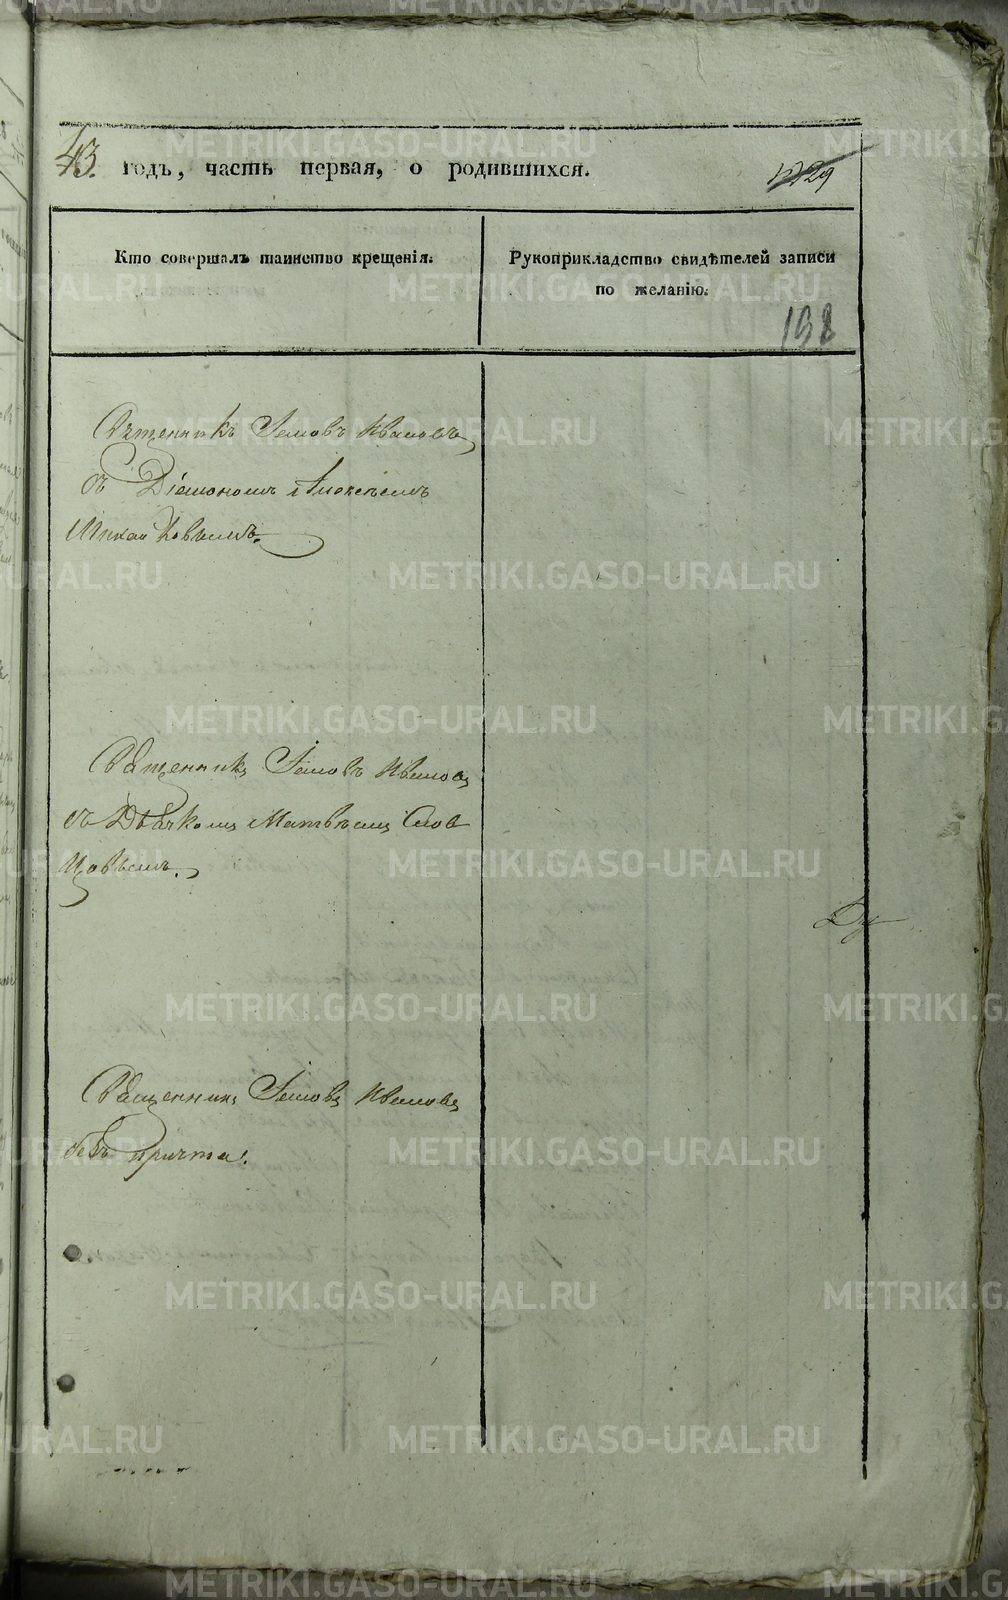 43. годъ, часть первая, о родившихся.
Кто совершалъ таинство крещенія.
Рукоприкладство свидѣтелей записи
по желанію.
198
Священникъ Іаковъ Ивановъ
съ Діакономъ Алексѣемъ
Священникъ Іаковъ Ивановъ
съ Дьячкомъ Матвѣемъ Слов
цовымъ.
Священникъ Іаковъ Ивановъ
безъ причта.
METRIKI.GASO-URAL.RU